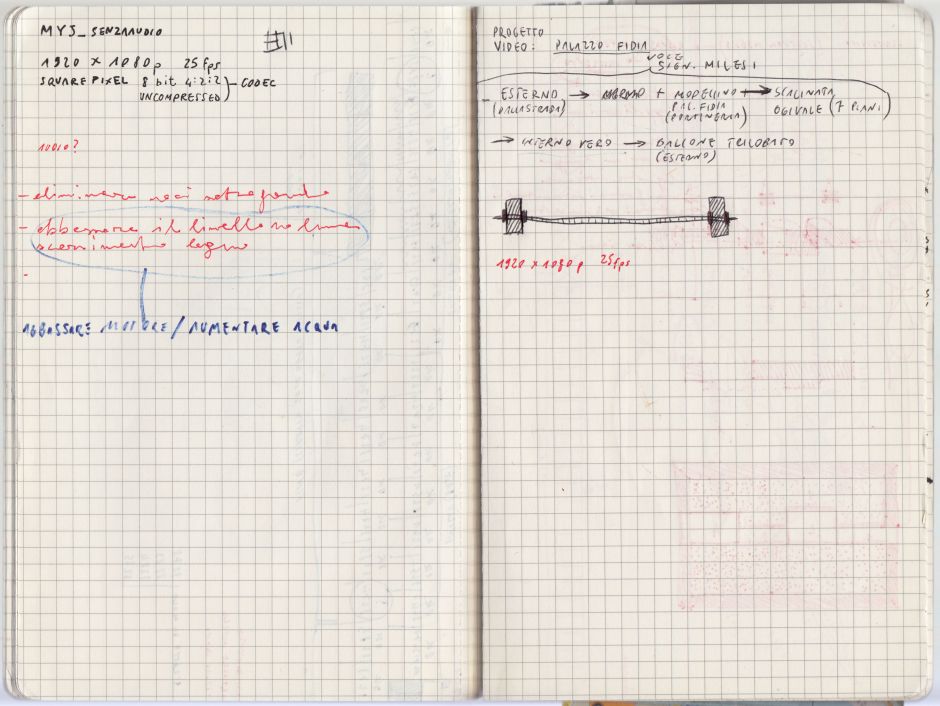 MYS_SENZAAUDIO
1920 x 1080p 25 fps
SQUARE PIXEL 8 bit 4:2:2 CODEC
UNCOMPRESSED
AUDIO?
- eliminare voci sottofondo
- abbassare il livello
scorrimento legno
ABBASSARE MOTORE / AUMENTARE ACQUA
PROGETTO
VIDEO: PALAZZO FIDIA
VOCE
SIGN. MILESI
- ESTERNO → + MODELLINO + → SCALINATA
(PALAZZO FIDIA) OGIVALE (7 PIANI)
PAL. FIDIA
(PORTINERIA)
→ INTERNO VERO → BALCONE TRILOBATO
(ESTERNO)
1920 x 1080p 25fps